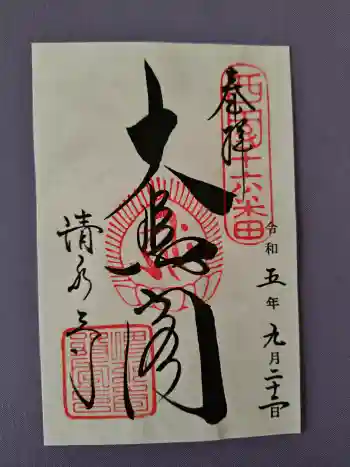 奉拝
西国十六番
令和五年九月二十二日
大悲閣
清水寺